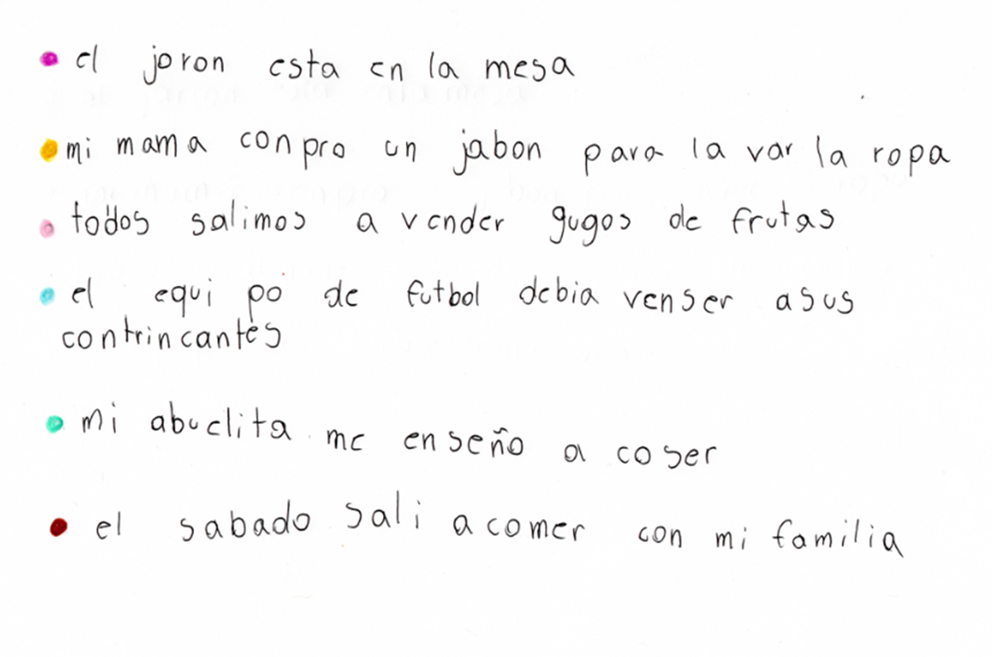 el joron esta en la mesa
mi mama conpro un jabon para la var la ropa
todos salimos a vender gugos de frutas
el equi po de futbol debia venser asus
contrincantes
mi abuelita me enseño a coser
el sabado sali acomer con mi familia